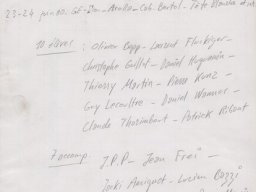 23-24 juin 10: GE-Do- Arolla - Cab. Bertol - Tête Blanche
10 élèves : Olivier Capp - Laurent Fluhiger -
Christophe Gillet - Daniel Huguenin -
Thierry Martin - Pierre Kunz -
Guy Lacoultre - Daniel Wanner -
Claude Thorimbert - Patrick Ribaut
7 accomp. J.P.P - Jean Frei -
Jacki Amiguet - Lucien Bozzi